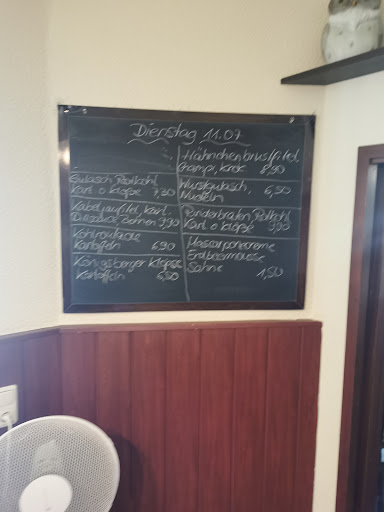 Dienstag 11.07
Gulasch, Rotkohl,
Kart. o Klöße 7,30
Kabeljaufilet, Kart.
Bohnen 9,90
Kohlroulade
Kartoffeln 6,90
Königsberger Klopse
Kartoffeln 6,50
Hähnchenbrustfilet
Champ, Krok. 8,90
Wurstgulasch,
Nudeln 6,50
Rinderbraten Rotkohl
Kart. o Klöße 9,90
Mascarponecreme
Erdbeermousse
Sahne 1,50